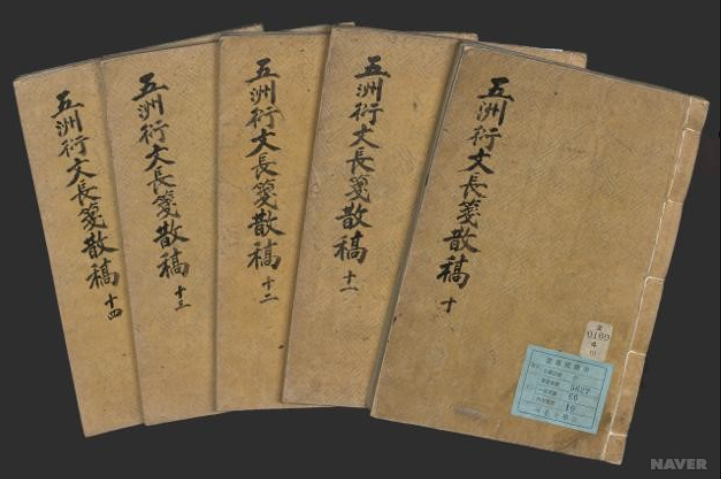 五洲衍文長箋散稿 十四
五洲衍文長箋散稿 十三
五洲衍文長箋散稿 十二
五洲衍文長箋散稿 十一
五洲衍文長箋散稿 十
10
NAVER